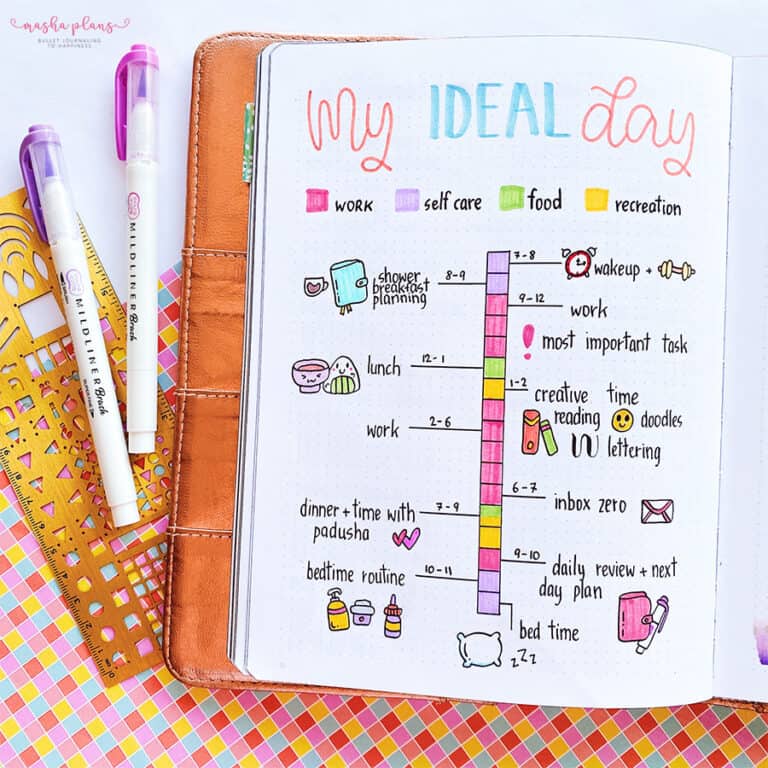 masha plans
BULLET JOURNALING
TO HAPPINESS
My IDEAL day
WORK self care food recreation
7-8 wakeup +
8-9 shower
breakfast
planning
9-12 work
! most important task
lunch 12-1
1-2 creative time
reading doodles
lettering
work 2-6
6-7 inbox zero
dinner + time with 7-9
padusha
9-10 daily review + next
day plan
bedtime routine 10-11
bed time
zzz
MILDLINER Brush
MILDLINER Brush